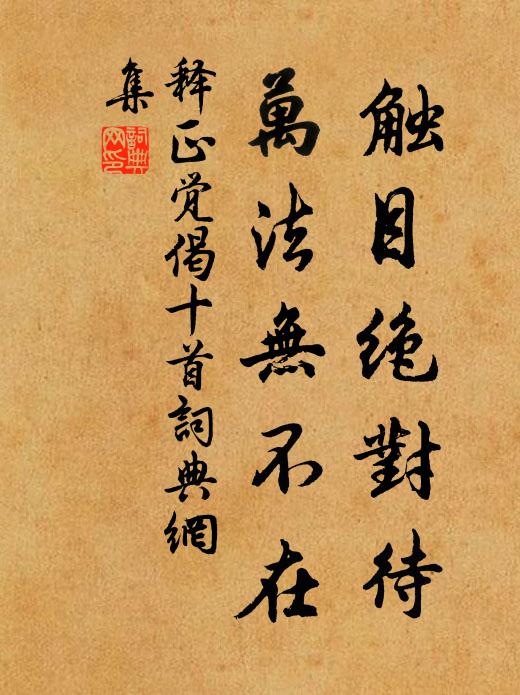 触目绝對待
萬法無不在
释正觉偈十首詞典網
集
詞典
网印